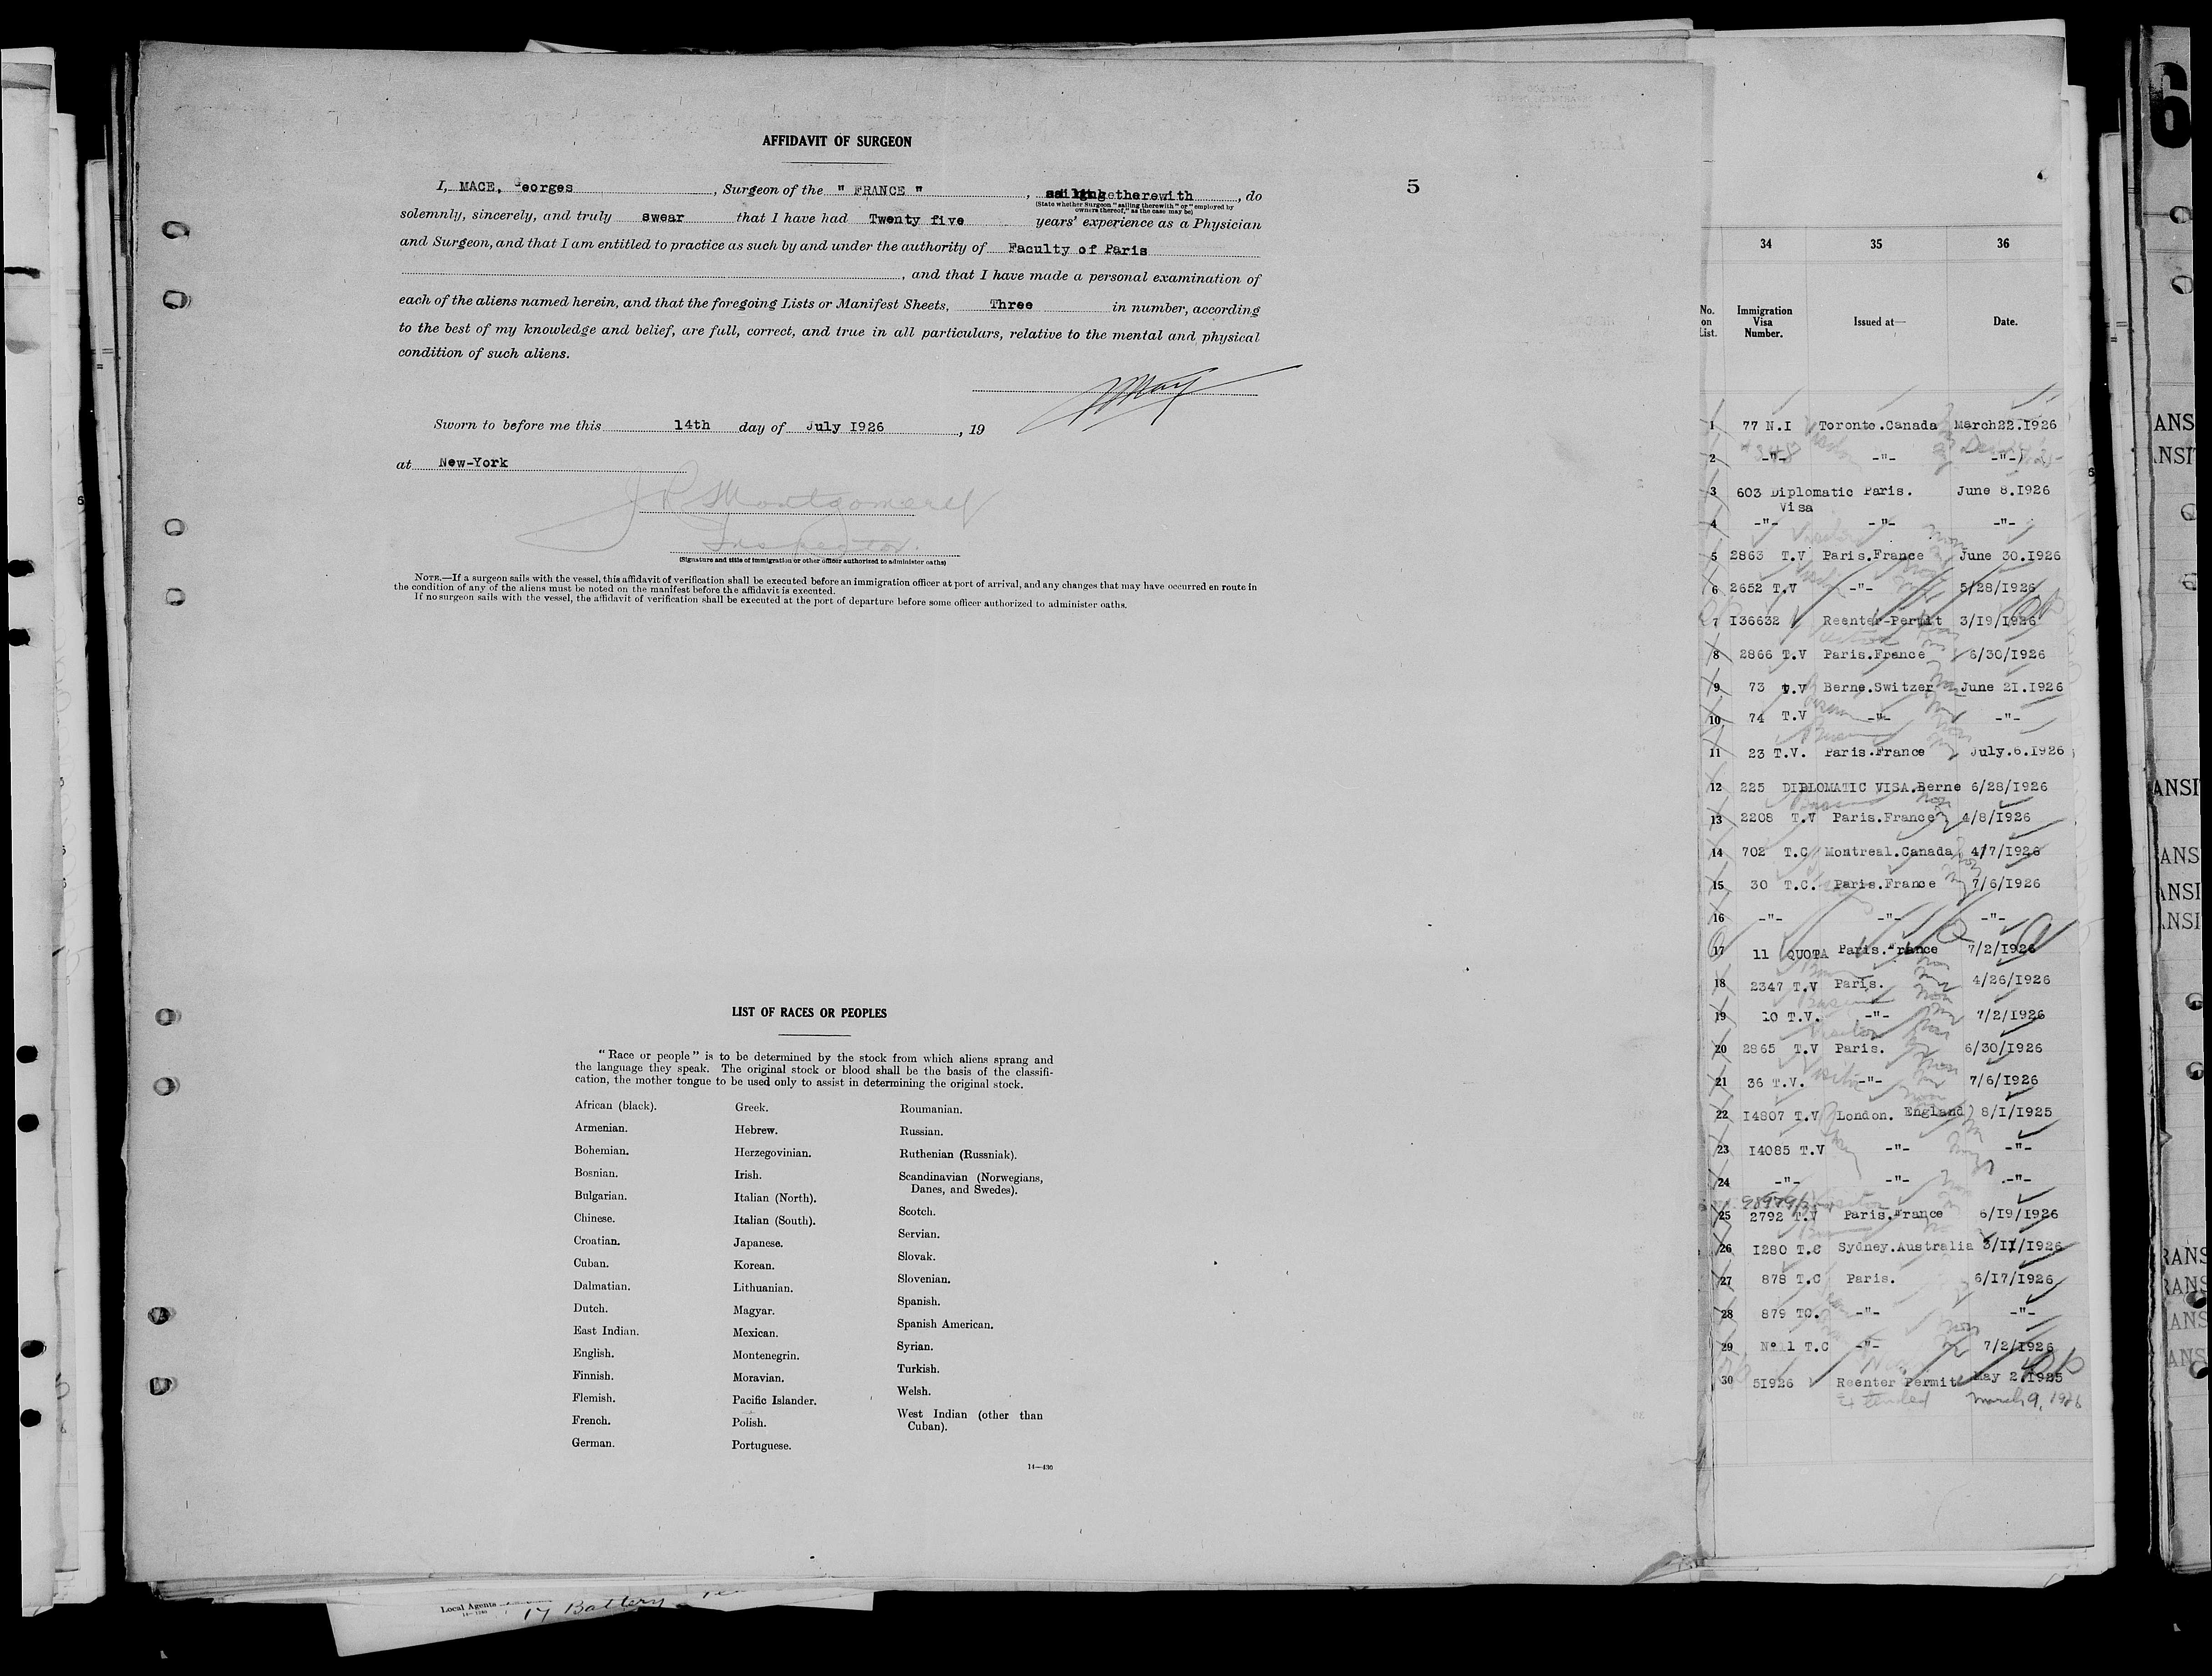 AFFIDAVIT OF SURGEON
5
I, MACE, Georges, Surgeon of the " FRANCE ", sailing therewith, do
(State whether Surgeon "sailing therewith" or "employed by owners thereof," as the case may be)
solemnly, sincerely, and truly swear that I have had Twenty five years' experience as a Physician
and Surgeon, and that I am entitled to practice as such by and under the authority of Faculty of Paris
, and that I have made a personal examination of
each of the aliens named herein, and that the foregoing Lists or Manifest Sheets, Three in number, according
to the best of my knowledge and belief, are full, correct, and true in all particulars, relative to the mental and physical
condition of such aliens.
Sworn to before me this 14th day of July I926, 19
at New-York
Inspector.
(Signature and title of immigration or other officer authorized to administer oaths)
NOTE.—If a surgeon sails with the vessel, this affidavit of verification shall be executed before an immigration officer at port of arrival, and any changes that may have occurred en route in
the condition of any of the aliens must be noted on the manifest before the affidavit is executed.
If no surgeon sails with the vessel, the affidavit of verification shall be executed at the port of departure before some officer authorized to administer oaths.
LIST OF RACES OR PEOPLES
"Race or people" is to be determined by the stock from which aliens sprang and
the language they speak. The original stock or blood shall be the basis of the classifi-
cation, the mother tongue to be used only to assist in determining the original stock.
African (black).
Armenian.
Bohemian.
Bosnian.
Bulgarian.
Chinese.
Croatian.
Cuban.
Dalmatian.
Dutch.
East Indian.
English.
Finnish.
Flemish.
French.
German.
Greek.
Hebrew.
Herzegovinian.
Irish.
Italian (North).
Italian (South).
Japanese.
Korean.
Lithuanian.
Magyar.
Mexican.
Montenegrin.
Moravian.
Pacific Islander.
Polish.
Portuguese.
Roumanian.
Russian.
Ruthenian (Russniak).
Scandinavian (Norwegians,
Danes, and Swedes).
Scotch.
Servian.
Slovak.
Slovenian.
Spanish.
Spanish American.
Syrian.
Turkish.
Welsh.
West Indian (other than
Cuban).
14—430
Local Agents
17 Battery
34 35 36
No. on List. Immigration Visa Number. Issued at— Date.
1 77 N.I Toronto.Canada March22.I926
2 -"- -"- -"-
3 603 Diplomatic Paris. June 8.I926
Visa
4 -"- -"- -"-
5 2863 T.V Paris.France June 30.I926
6 2652 T.V -"- 5/28/I926
7 I36632 Reenter-Permit 3/I9/I926
8 2866 T.V Paris.France 6/30/I926
9 73 T.V Berne.Switzer June 2I.I926
10 74 T.V -"- -"-
11 23 T.V. Paris.France July.6.I926
12 225 DIPLOMATIC VISA.Berne 6/28/I926
13 2208 T.V Paris.France 4/8/I926
14 702 T.C Montreal.Canada 4/7/I926
15 30 T.C. Paris.France 7/6/I926
16 -"- -"- -"-
17 11 QUOTA Paris.France 7/2/I926
18 2347 T.V Paris. 4/26/I926
19 10 T.V. -"- 7/2/I926
20 2865 T.V Paris. 6/30/I926
21 36 T.V. -"- 7/6/I926
22 I4807 T.V London. England) 8/I/I925
23 I4085 T.V -"- -"-
24 -"- -"- -"-
25 2792 T.V Paris.France 6/I9/I926
26 I280 T.C Sydney.Australia 3/II/I926
27 878 T.C Paris. 6/I7/I926
28 879 TC. -"- -"-
29 N°11 T.C -"- 7/2/I926
30 5I926 Reenter Permit May 2.I925
Extended March 9, 1926
6